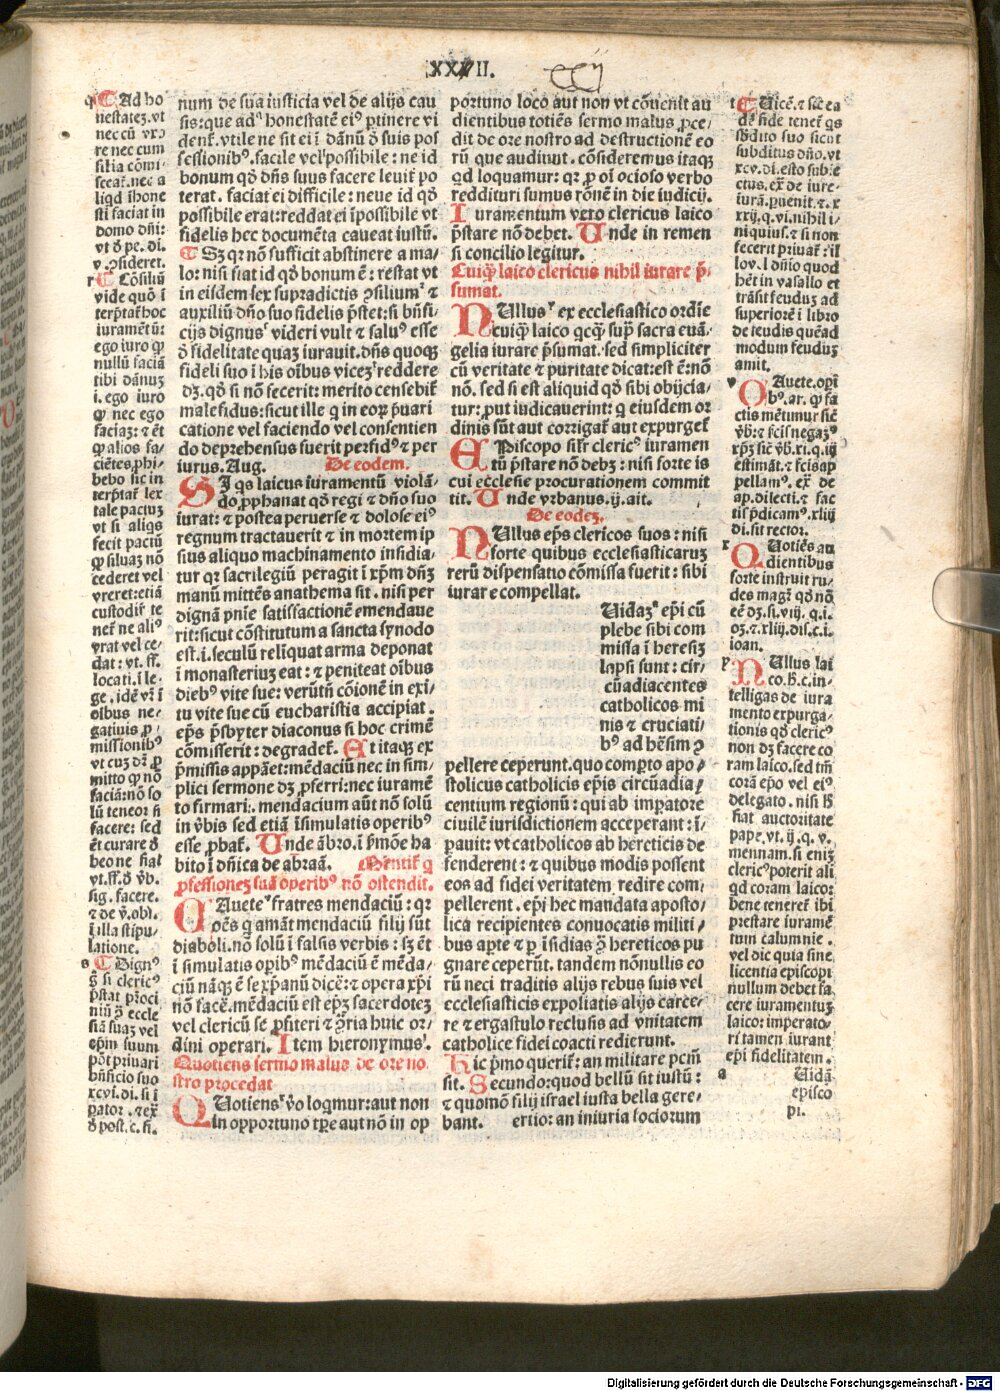 XXXII.
ccij
q ¶ Ad ho
nestatez.vt
nec cū vxo
re nec cum
filia cōmi-
sceat̄.nec a
liqd īhone
sti faciat in
domo dn̄i:
vt ď pe. di.
v.ꝯsideret.
r ¶ Cōsiliū
vide quō ī
terp̄tat̄ hoc
iuramētū:
ego iuro ꝙ
nullū faciā
tibi dānuz
i. ego iuro
ꝙ nec ego
faciaz: ⁊ ēt
ꝙ alios fa-
ciētes,phi-
bebo sic in
terp̄tat̄ lex
tale pactuz
vt si aliqs
fecit pactū
ꝙ siluaz nō
cederet vel
vreret:etiā
custodir̄ te
net̄ ne aliꝰ
vrat vel ce-
dat: vt.ff.
locati.i le-
ge. idē vī i
oībus ne-
gatiuis ꝓ-
missionibꝰ
vt cuz dr̄ ꝓ
mitto ꝙ nō
faciā:nō so
lū teneor si
facere: sed
ēt curare ď
beo ne fiat
vt.ff.ď v̄b.
sig. facere.
⁊ de v̄.obl.
ī illa stipu-
latione.
s ¶ Dignꝰ
ꝗ si clericꝰ
p̄stat p̄oci
niū ꝗ eccle
siā suaz vel
ep̄m suum
pōt priuari
bn̄ficio suo
xcvi.di.si i
pator. ⁊ ex̄
ď post.c.fi.
num de sua iusticia vel de alijs cau
sis:que adꝰ honestatē ei⁹ ꝑtinere vi
denť.vtile ne sit ei ī dānū ď suis pos
sessionibꝰ.facile vel possibile: ne id
bonum qď dn̄s suus facere leuit̄ po
terat. faciat ei difficile: neue id qď
possibile erat:reddat ei īpossibile vt
fidelis hec documēta caueat iustū.
¶ Sz qꝛ nō sufficit abstinere a ma-
lo: nisi fiat id qď bonum ē: restat vt
in eisdem sex supradictis ꝯsiliumꝰ ⁊
auxiliū dn̄o suo fidelis p̄stet:si bn̄fi-
cijs dignusꝰ videri vult ⁊ saluꝰ esse
ď fidelitate quaz iurauit.dn̄s quoqꝫ
fideli suo i his oībus vicezꝰ reddere
dz.qď si nō fecerit: merito censebit̄
malefidus:sicut ille q in eorꝝ p̄uari
catione vel faciendo vel consentien
do deprehensus fuerit perfidꝰ ⁊ per
iurus.Aug. De eodem.
SI qs laicus iuramentū violā-
do,pphanat qď regi ⁊ dn̄o suo
iurat: ⁊ postea peruerse ⁊ dolose eiꝰ
regnum tractauerit ⁊ in mortem ip
sius aliquo machinamento insidia-
tur qꝛ sacrilegiū peragit i xp̄m dn̄z
manū mittēs anathema sit. nisi per
dignā pn̄ie satisfactionē emendaue
rit:sicut cōstitutum a sancta synodo
est.i.seculū relīquat arma deponat
ī monasteriuz eat: ⁊ peniteat oībus
diebꝰ vite sue: verūtn̄ cōionē in exi-
tu vite sue cū eucharistia accipiat.
ep̄s p̄sbyter diaconus si hoc crimē
cōmisserit: degradet̄. Et itaqꝫ ex
p̄missis appāet:mēdaciū nec in sim-
plici sermone dz,pserri:nec iuramē
to firmari. mendacium aūt nō solū
in v̄bis sed etiā īsimulatis operibꝰ
esse ,pbať. Unde ābro.ī p̄mōe ha
bito ī dn̄ica de abraā. Mentit̄ q
,pfessionez suā operibꝰ nō ostendit.
CAueteꝰ fratres mendaciū: qꝛ
oēs q amāt mendaciū filij sūt
diaboli.nō solū ī falsis verbis: sz ēt
ī simulatis opibꝰ mēdaciū ē mēda-
ciū nāqꝫ ē se xp̄anū dicē: ⁊ opera xp̄i
nō facē.mēdaciū est ep̄z sacerdotez
vel clericū se ,pfiteri ⁊ ꝯria huic or-
dini operari. Item hieronymusꝰ.
Quotiens sermo malus de ore no
stro procedat
QUotiensꝰ v̄o loqmur:aut non
in opportuno tp̄e aut nō in op
portuno loco aut non vt cōuenit au
dientibus totiēs sermo malus ,pce-
dit de ore nostro ad destructionē eo
rū que audiunt. cōsideremus itaqꝫ
qd loquamur: qꝛ ꝓ oī ocioso verbo
reddituri sumus rōnē in die iudicij.
Iuramentum vero clericus laico
p̄stare nō debet. Unde in remen
si concilio legitur.
Cuiqꝫ laico clericus nihil iurare p̄-
sumat.
NUllusꝰ ex ecclesiastico ordīe
cuiqꝫ laico qcqꝫ sup̄ sacra euā-
gelia iurare p̄sumat.sed simpliciter
cū veritate ⁊ puritate dicat:est ē:nō
nō. sed si est aliquid qď sibi obijcia-
tur:,put iudicauerint: q eiusdem or
dinis sūt aut corrigat̄ aut expurget̄
EPiscopo sīr clericꝰ iuramen
tū p̄stare nō debz: nisi forte is
cui ecclesie procurationem commit
tit. Unde vrbanus.ij.ait.
De eodez.
NUllus ep̄s clericos suos: nisi
forte quibus ecclesiasticaruz
rerū dispensatio cōmissa fuerit: sibi
iurare compellat.
Uidazꝰ ep̄i cū
plebe sibi com
missa ī heresiz
lapsi sunt: cir-
cūadiacentes
catholicos mi
nis ⁊ cruciati-
bꝰ ad hēsim ꝯ
pellere ceperunt.quo comp̄to apo-
stolicus catholicis ep̄is circūadia-
centium regionū: qui ab imp̄atore
civilē iurisdictionem acceperant: ī-
pauit: vt catholicos ab hereticis de
fenderent: ⁊ quibus modis possent
eos ad fidei veritatem redire com-
pellerent. ep̄i hec mandata aposto-
lica recipientes conuocatis militi-
bus aperte ⁊ ꝑ īsidias ꝯ hereticos pu
gnare ceperūt. tandem nōnullis eo
rū neci traditis alijs rebus suis vel
ecclesiasticis expoliatis alijs carce-
re ⁊ ergastulo reclusis ad vnitatem
catholice fidei coacti redierunt.
Hic p̄mo querit̄: an militare pcm̄
sit. Secundo:quod bellū sit iustū:
⁊ quomō filij israel iusta bella gere-
bant. ertio: an iniuria sociorum
t ¶ Uicē.⁊ sic ea
dē fide tenet̄ qs
sbdito suo sicut
subditus dn̄o.vt
xcv.di.esto subie
ctus.ex̄ de iure-
iurā.ꝑuenit.⁊.x
xij.q.vi.nihil i-
niquius.⁊ si non
fecerit priuat̄:il
lov.l dn̄io quod
hēt in vasallo et
trāsit feuduz ad
superiorē ī libro
de feudis quēad
modum feuduz
amit.
v CAuete.opī
bꝰ.ar. ꝙ fa
ctis mētimur sic̄
v̄b: ⁊ fcīs negaz⁹
xp̄z sic̄ v̄b.xi.q.iij
estimāt.⁊ fcīs ap
pellamꝰ. ex̄ de
ap.dilecti.⁊ fac
tis p̄dicamꝰ.xliij
di.sit rector.
x QUotiēs au
dientibus
forte instruit ru-
des magr̄ qď nō
eē dz.si.viij. q.i.
oz.⁊.xliij.dis.c.i.
ioan.
y NUllus lai
co.h.c.in-
telligas de iura
mento expurga-
tionis qď clericꝰ
non dz facere co
ram laico.sed tm̄
corā ep̄o vel eiꝰ
delegato. nisi hꝰ
fiat auctoritate
pape.vt.ij.q. v.
mennam.si eniz
clericꝰpoterit ali
qd coram laico:
bene teneret̄ ibi
prestare iuramē
tum calumnie.
vel dic quia sine
licentia episcopi
nullum debet fa
cere iuramentuz
laico: imperato-
ri tamen iurant
ep̄i fidelitatem.
a Uidā
episco
pi.
Digitalisierung gefördert durch die Deutsche Forschungsgemeinschaft - DFG